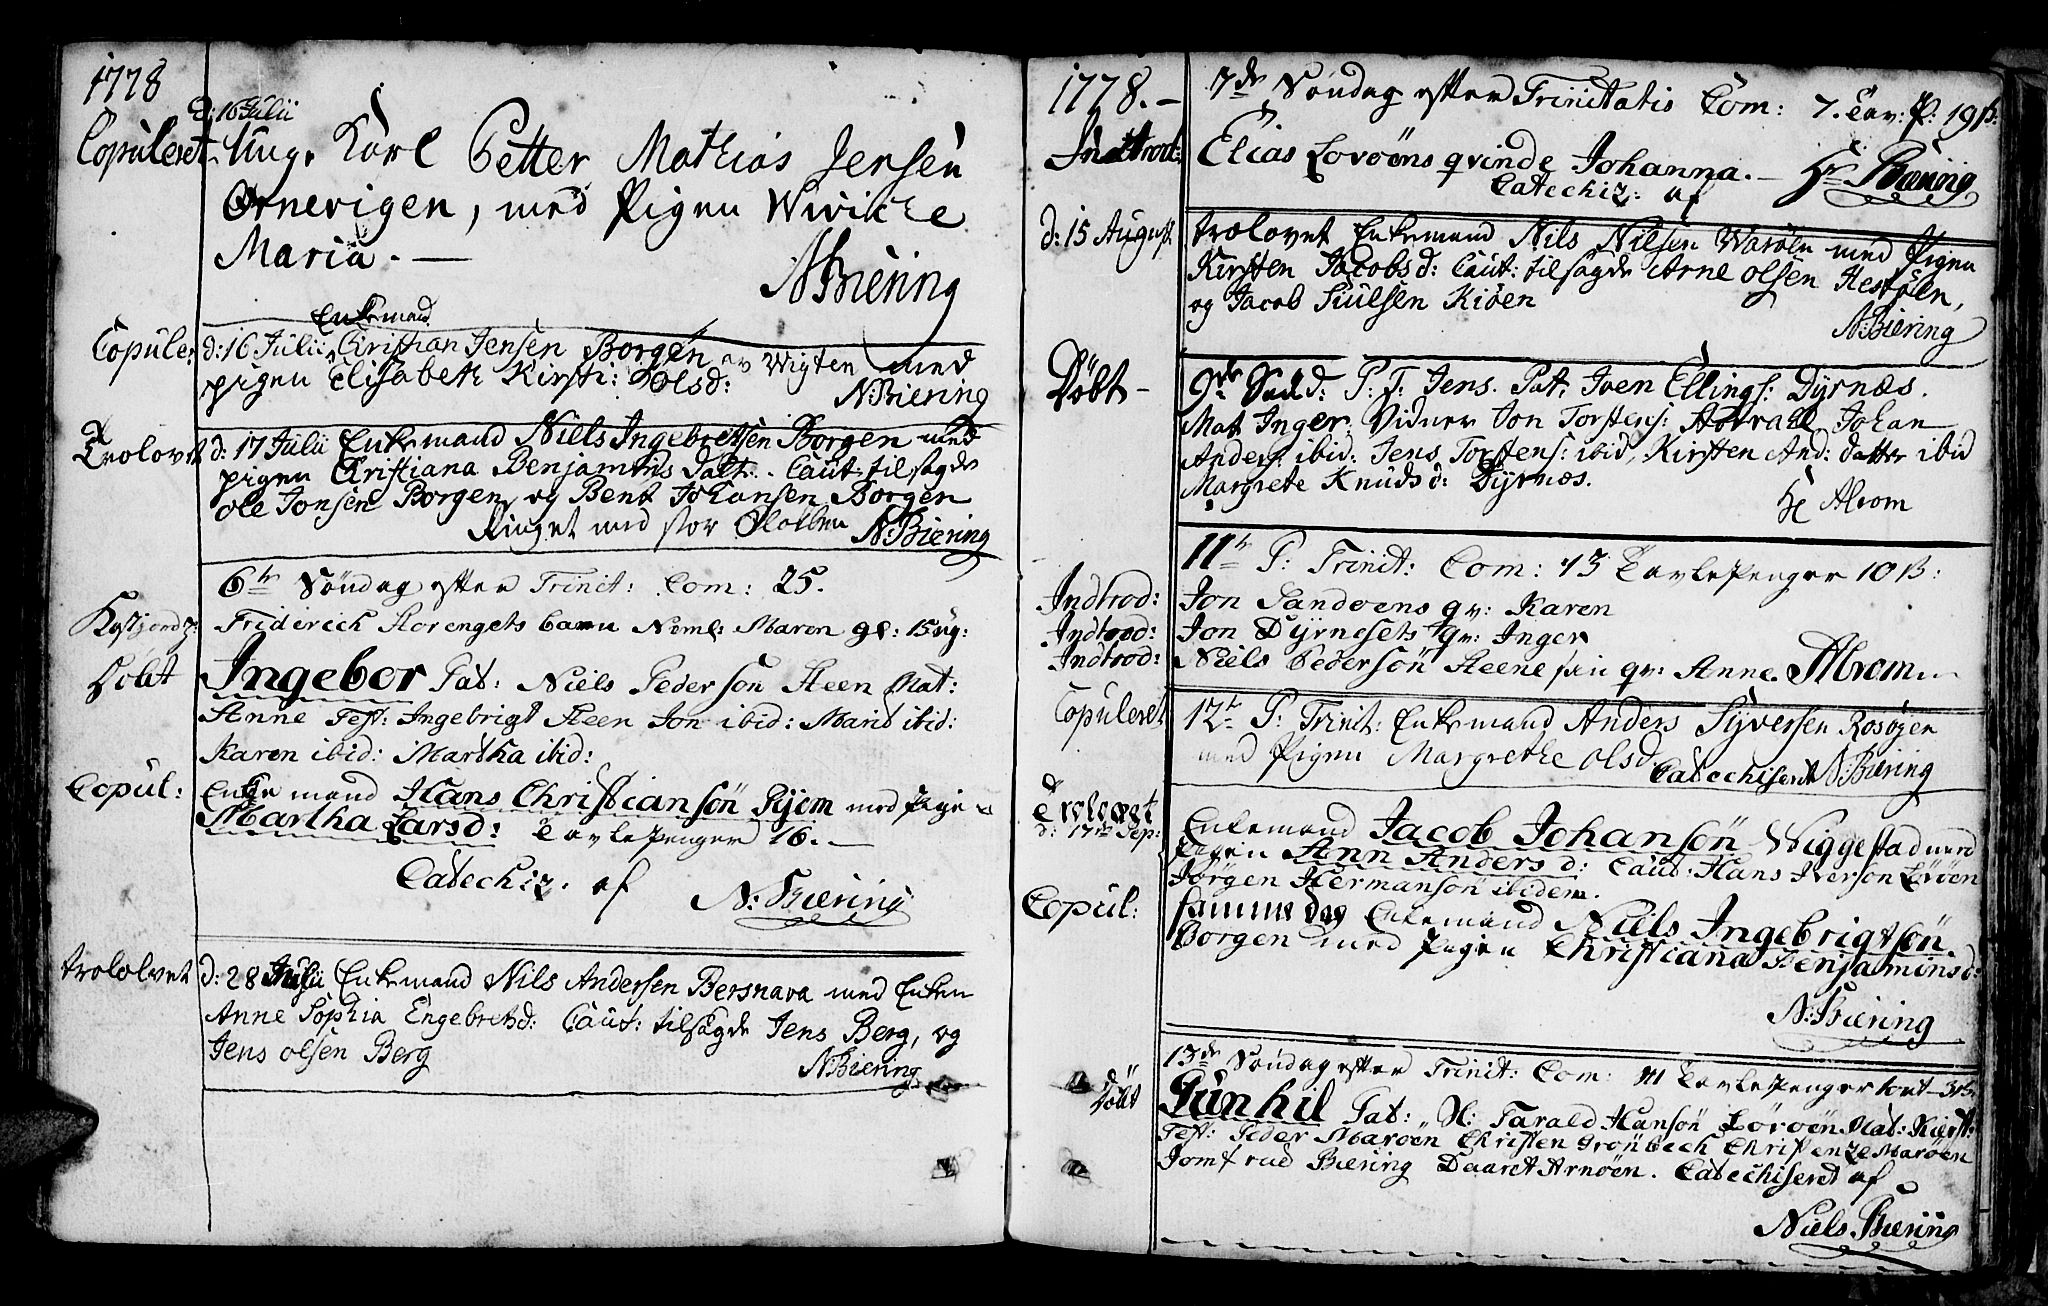 1778
d: 16 Julii
Copuleret Unge Karl Petter Mathias Jensen
Ornevigen, med Pigen Wivicke
Maria. —
NBiering
Enkemand
Copuler d: 16 Julii Christian Jensen Borgen av Wigten med
pigen Elisabeth Kirsti: Olsd:
N:Biering
Trolovet d: 17 Julii Enkemand Niels Ingebretsen Borgen med
pigen Christiana Benjamins datt. Caut: tilsagde
Ole Jonsen Borgen og Bent Johansen Borgen
Ringet med stor Klokken N:Biering
6te Søndag efter Trinit: Com: 25.
Friderich Korengets barn Neml: Maren gl: 15 ug:
Døbt Ingebor Pat: Niels Pederson Steen Mat:
Anne Test: Ingebrigt Steen Jon ibid: Marit ibid:
Karen ibid: Martha ibid:
Copul: Enke mand Hans Christiansön med Pige
Martha Larsd: TavlePenger 16. —
Catechiz: af N: Biering
trolovet d: 28 Julii Enkemand Nils Andersen Bersnava med Enken
Anne Sophia Engebretsd: Caut: tilsagde Jens Berg, og
Jens olsen Berg
NBiering
1778. — 7de Søndag efter Trinitatis Com: 7. Tav: P: 19 β:
Indtrod: Elias Lovøens qvinde Johanna. — Hr Biering
Catechiz: af
d: 15 August trolovet Enkemand Nils Nilsen Warøen med Pigen
Kirsten Jacobsd: Caut: tilsagde Arne Olsen Hestøen,
og Jacob Siulsen Kiøen
N:Biering
Døbt — 9de Sønd: P: T: Jens. Pat: Iven Ellings: Dyrnæs.
Mat Inger. Vidner Jon Torstens: Johan
Anders: ibid: Jens Torstens: ibid, Kirsten And: datter ibid
Margrete Knudsd: Dyrnæs.
Hr Alrom
11te P: Trinit: Com: 13 TavlePenger 10 β:
Indtrod: Jon Sandøens qv: Karen
Indtrod: Jon Dyrnesets qv: Inger
Indtrod: Niels Pedersön Steene qv: Anne. Alrom
Copuleret 12te P: Trinit: Enkemand Anders Syversen Rosøjen
med Pigen Margrethe olsd
Catechiseret N:Biering
Trolovet
d: 17de Sep: Enkemand Jacob Johansön Wiggestad med
Pigen Ann Andersd: Caut: Hans Iverson Lövøen
Jørgen Hermansön ibidem.
Copul: samme dag Enkemand Niels Ingebrigtsön
Borgen med Pigen Christiana Benjaminsd:
N:Biering
13de Søndag efter Trinit: Com: TavlePenger
Døbt Gunhil Pat: H: Tarald Hansön Lörøen Mat: Kierst:
Test: Peder Marøen Christen Grönbech Christense Marøen
Jomfrue Biering Daaret Arnøen. Catechiseret af
Niels Biering